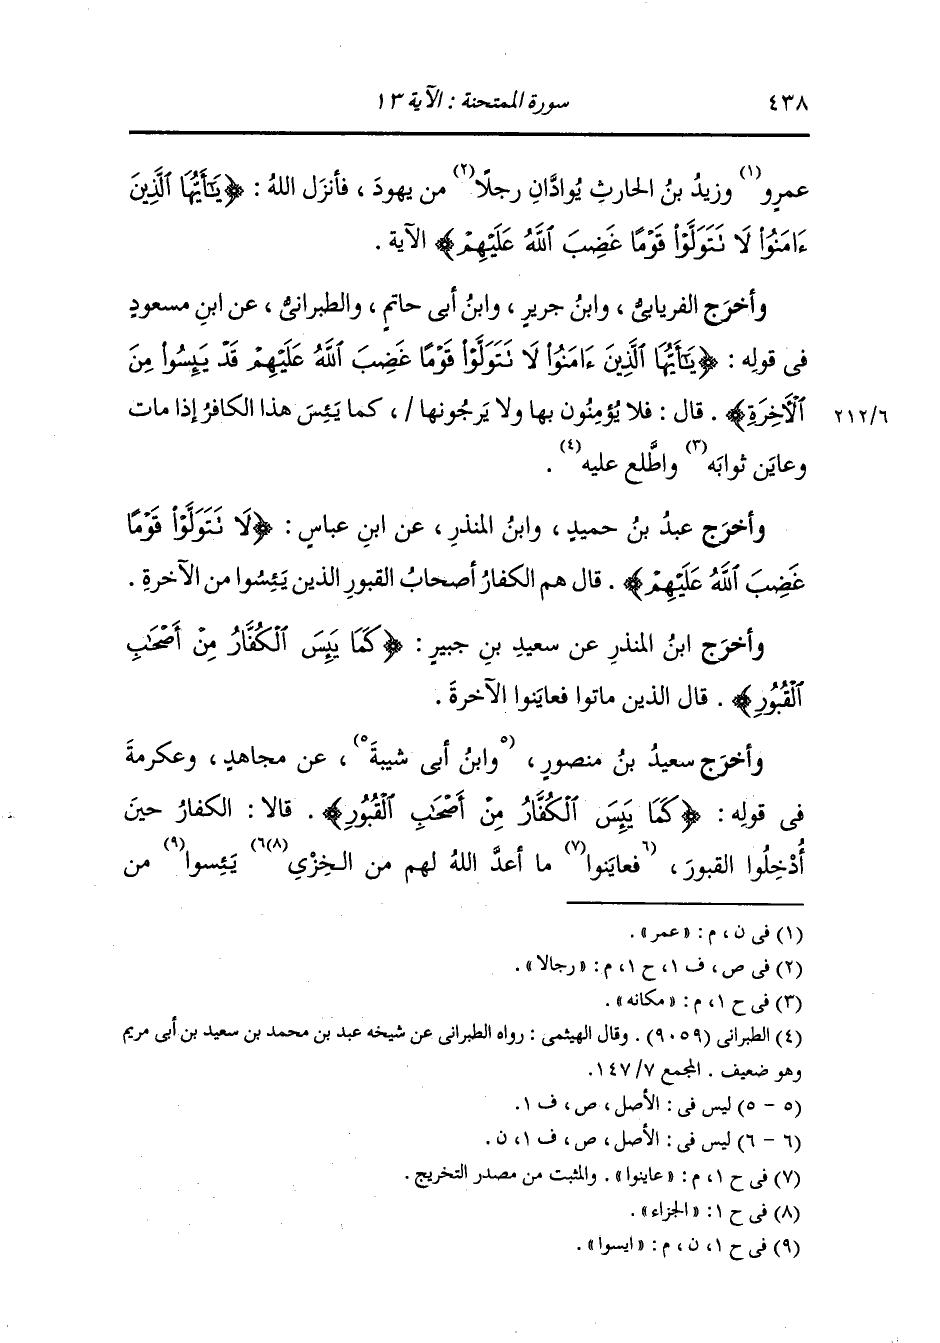 ٤٣٨ سورة الممتحنة : الآية ١٣
عمرٍو(١) وزيدُ بنُ الحارثِ يُوادَّانِ رجلًا(٢) من يهودَ ، فأنزَل اللهُ : ﴿يَٰٓأَيُّهَا ٱلَّذِينَ
ءَامَنُوا۟ لَا تَتَوَلَّوْا۟ قَوْمًا غَضِبَ ٱللَّهُ عَلَيْهِمْ﴾ الآية .
وأخرَج الفريابىُّ ، وابنُ جريرٍ ، وابنُ أبى حاتمٍ ، والطبرانىُّ ، عن ابنِ مسعودٍ
فى قولِه : ﴿يَٰٓأَيُّهَا ٱلَّذِينَ ءَامَنُوا۟ لَا تَتَوَلَّوْا۟ قَوْمًا غَضِبَ ٱللَّهُ عَلَيْهِمْ قَدْ يَئِسُوا۟ مِنَ
٢١٢/٦ ٱلْأَخِرَةِ﴾ . قال : فلا يُؤمِنُون بها ولا يَرجُونها / ، كما يَئِسَ هذا الكافرُ إذا مات
وعايَن ثوابَه(٣) واطَّلع عليه(٤) .
وأخرَج عبدُ بنُ حميدٍ ، وابنُ المنذرِ ، عن ابنِ عباسٍ : ﴿لَا تَتَوَلَّوْا۟ قَوْمًا
غَضِبَ ٱللَّهُ عَلَيْهِمْ﴾ . قال هم الكفارُ أصحابُ القبورِ الذين يَئِسُوا من الآخرةِ .
وأخرَج ابنُ المنذرِ عن سعيدِ بنِ جبيرٍ : ﴿كَمَا يَئِسَ ٱلْكُفَّارُ مِنْ أَصْحَٰبِ
ٱلْقُبُورِ﴾ . قال الذين ماتوا فعايَنوا الآخرةَ .
وأخرَج سعيدُ بنُ منصورٍ ، (٥وابنُ أبى شيبةَ٥) ، عن مجاهدٍ ، وعكرمةَ
فى قولِه : ﴿كَمَا يَئِسَ ٱلْكُفَّارُ مِنْ أَصْحَٰبِ ٱلْقُبُورِ﴾ . قالا : الكفارُ حينَ
أُدْخِلُوا القبورَ ، (٦فعايَنوا(٧) ما أعدَّ اللهُ لهم من الخِزْىِ(٨)٦) يَئِسوا(٩) من
(١) فى ن ، م : « عمر » .
(٢) فى ص ، ف ١ ، ح ١ ، م : « رجالا » .
(٣) فى ح ١ ، م : « مكانه » .
(٤) الطبرانى (٩٠٥٩) . وقال الهيثمى : رواه الطبرانى عن شيخه عبد بن محمد بن سعيد بن أبى مريم
وهو ضعيف . المجمع ١٤٧/٧ .
(٥ - ٥) ليس فى : الأصل ، ص ، ف ١ .
(٦ - ٦) ليس فى : الأصل ، ص ، ف ١ ، ن .
(٧) فى ح ١ ، م : « عاينوا » . والمثبت من مصدر التخريج .
(٨) فى ح ١ : « الجزاء » .
(٩) فى ح ١ ، ن ، م : « ايسوا » .